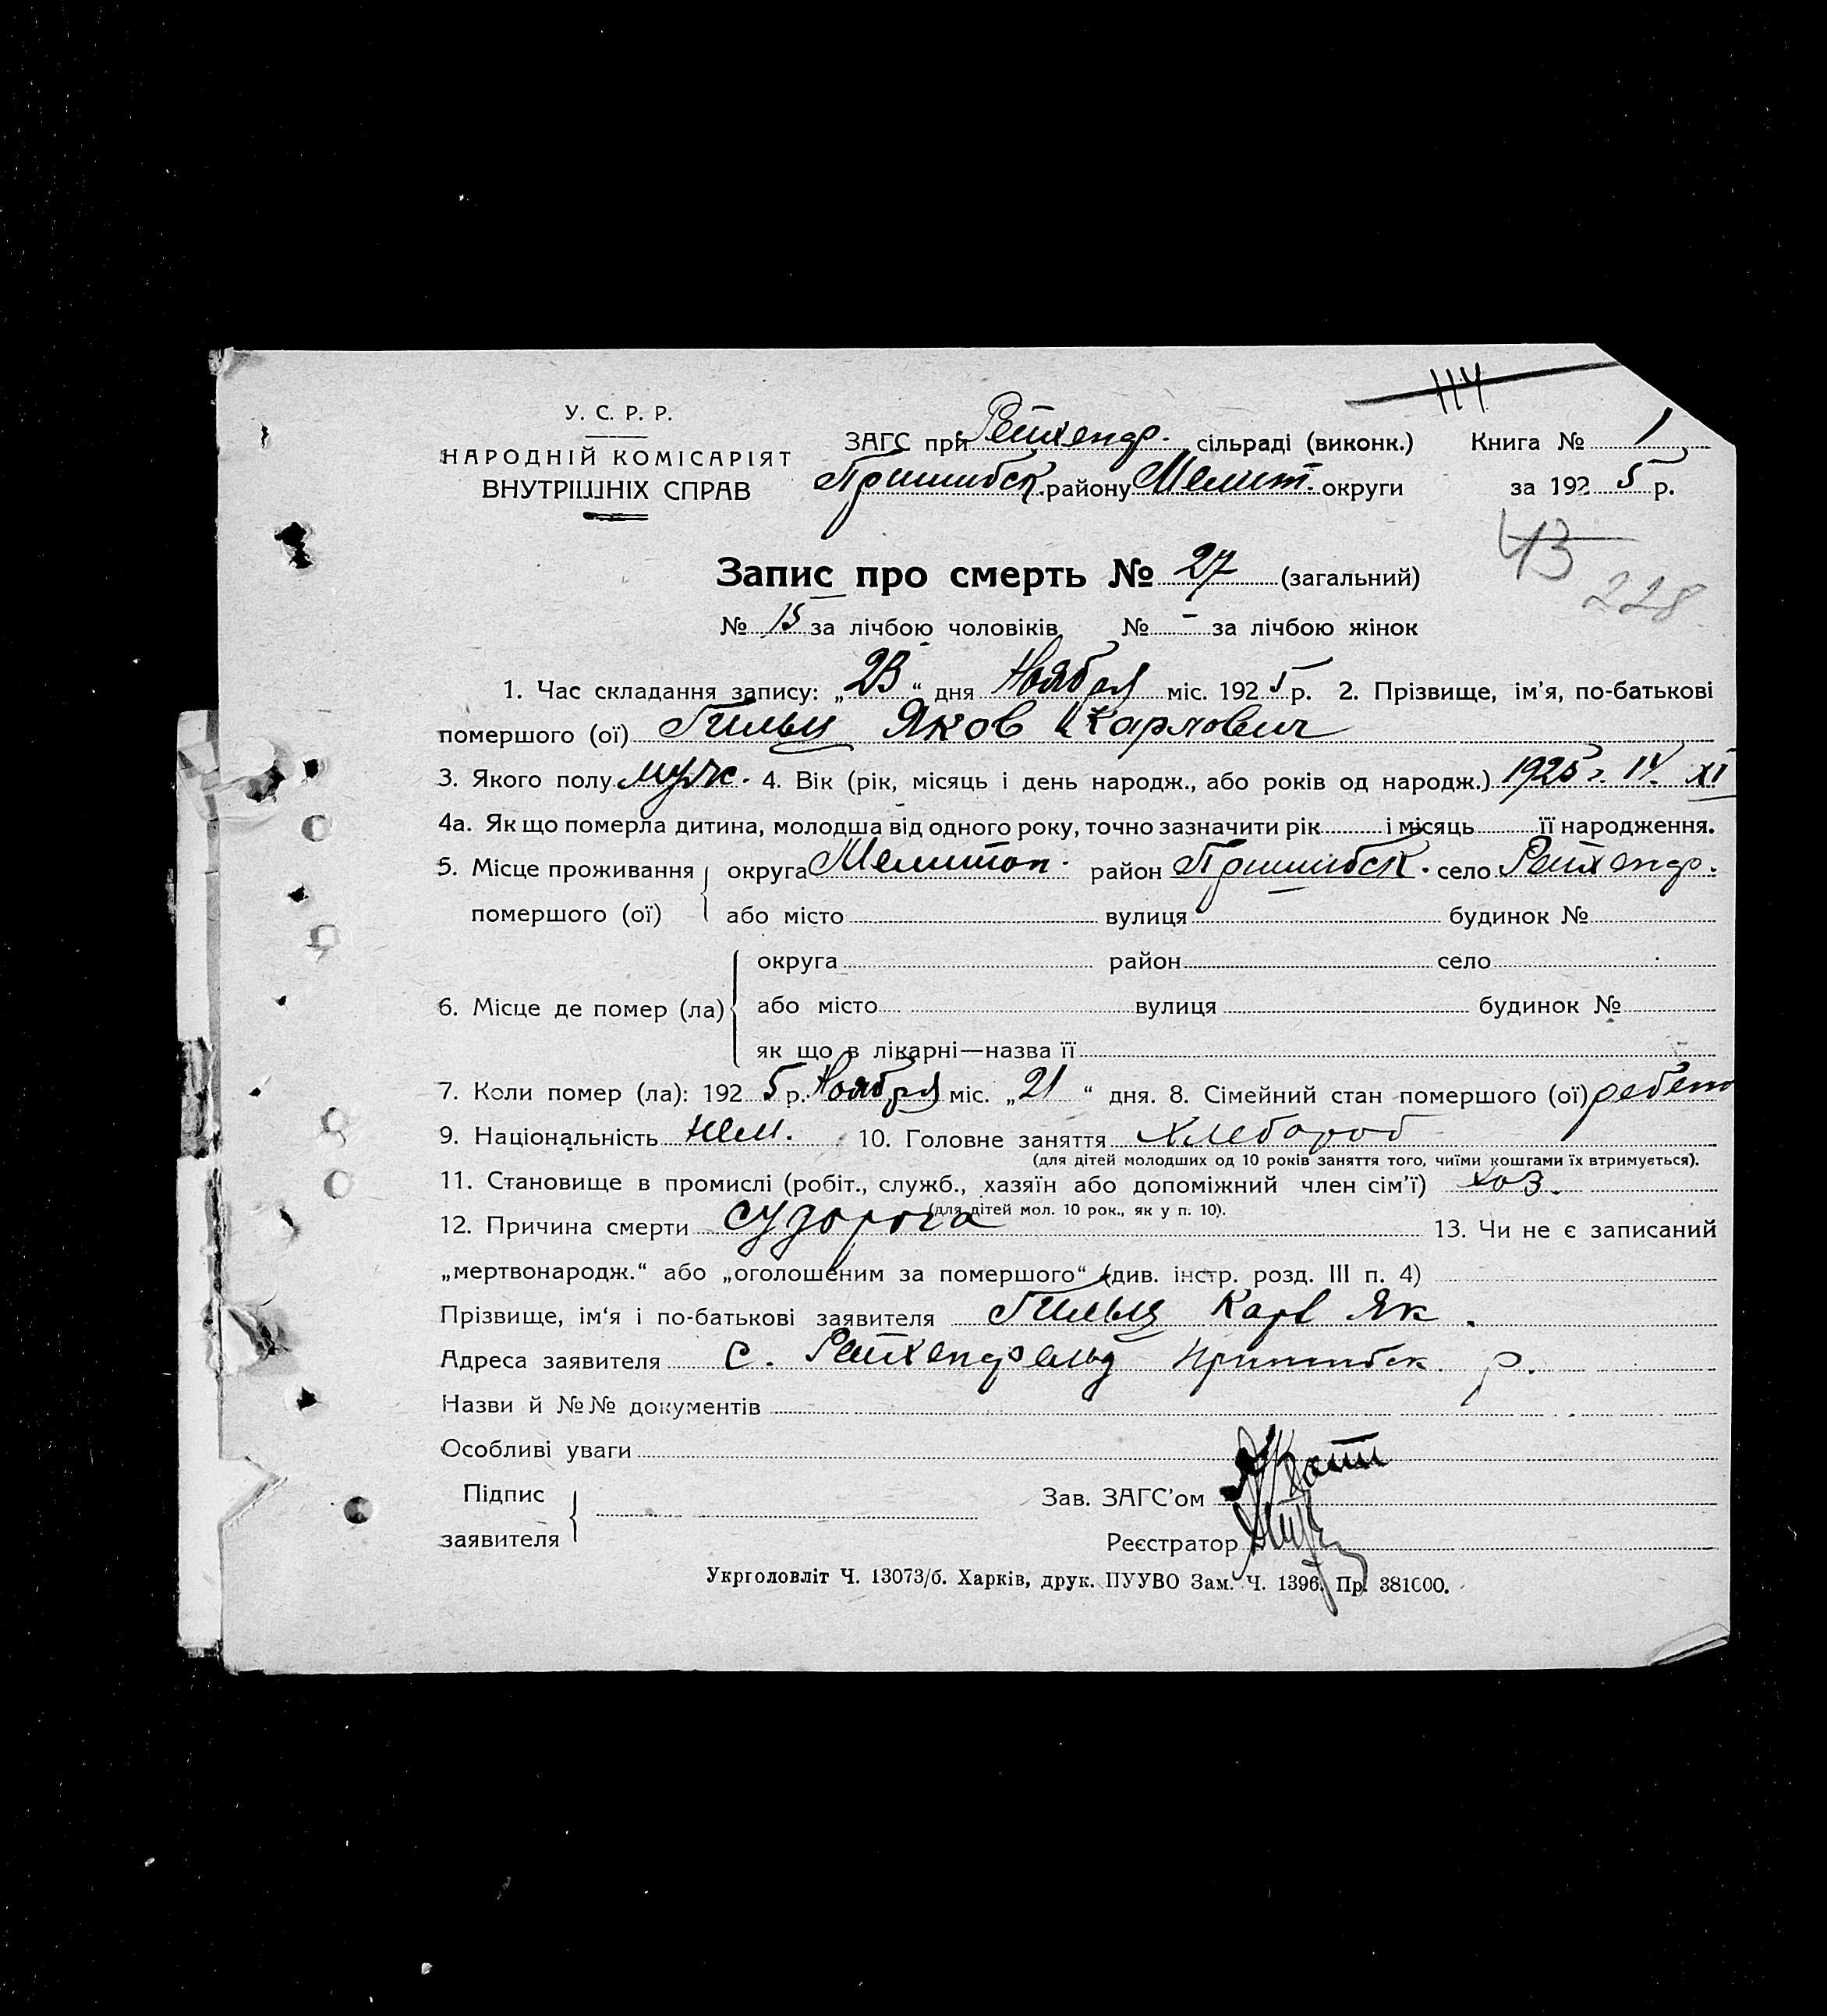 114
У. С. Р. Р.
НАРОДНІЙ КОМІСАРІЯТ
ВНУТРІШНІХ СПРАВ
ЗАГС при Рейхенф. сільраді (виконк.) Книга № 1
Пришибск. району Мелит. округи за 1925 р.
43
228
Запис про смерть № 27 (загальний)
№ 15 за лічбою чоловіків № - за лічбою жінок
1. Час складання запису: „23“ дня Ноября міс. 1925 р. 2. Прізвище, ім’я, по-батькові
помершого (ої) Гильц Яков Карлович
3. Якого полу муж. 4. Вік (рік, місяць і день народж., або років од народж.) 1925 г. 14 XI
4а. Як що померла дитина, молодша від одного року, точно зазначити рік і місяць її народження.
5. Місце проживання округа Мелитоп. район Пришибск. село Рейхенф.
помершого (ої) або місто вулиця будинок №
округа район село
6. Місце де помер (ла) або місто вулиця будинок №
як що в лікарні—назва її
7. Коли помер (ла): 1925 р. Ноября міс. „21“ дня. 8. Сімейний стан помершого (ої) ребено
9. Національність нем. 10. Головне заняття хлебороб
(для дітей молодших од 10 років заняття того, чиїми коштами їх втримується).
11. Становище в промислі (робіт., служб., хазяїн або допоміжний член сім’ї) хоз.
(для дітей мол. 10 рок., як у п. 10).
12. Причина смерти судорога 13. Чи не є записаний
„мертвонародж.“ або „оголошеним за помершого“ (див. інстр. розд. III п. 4)
Прізвище, ім‘я і по-батькові заявителя Гильц Карл Як.
Адреса заявителя с. Рейхенфельд Пришибск. р.
Назви й №№ документів
Особливі уваги
Підпис
заявителя
Зав. ЗАГС’ом
Реєстратор
Укрголовліт Ч. 13073/б. Харків, друк. ПУУВО Зам. Ч. 1396. Пр. 381000.